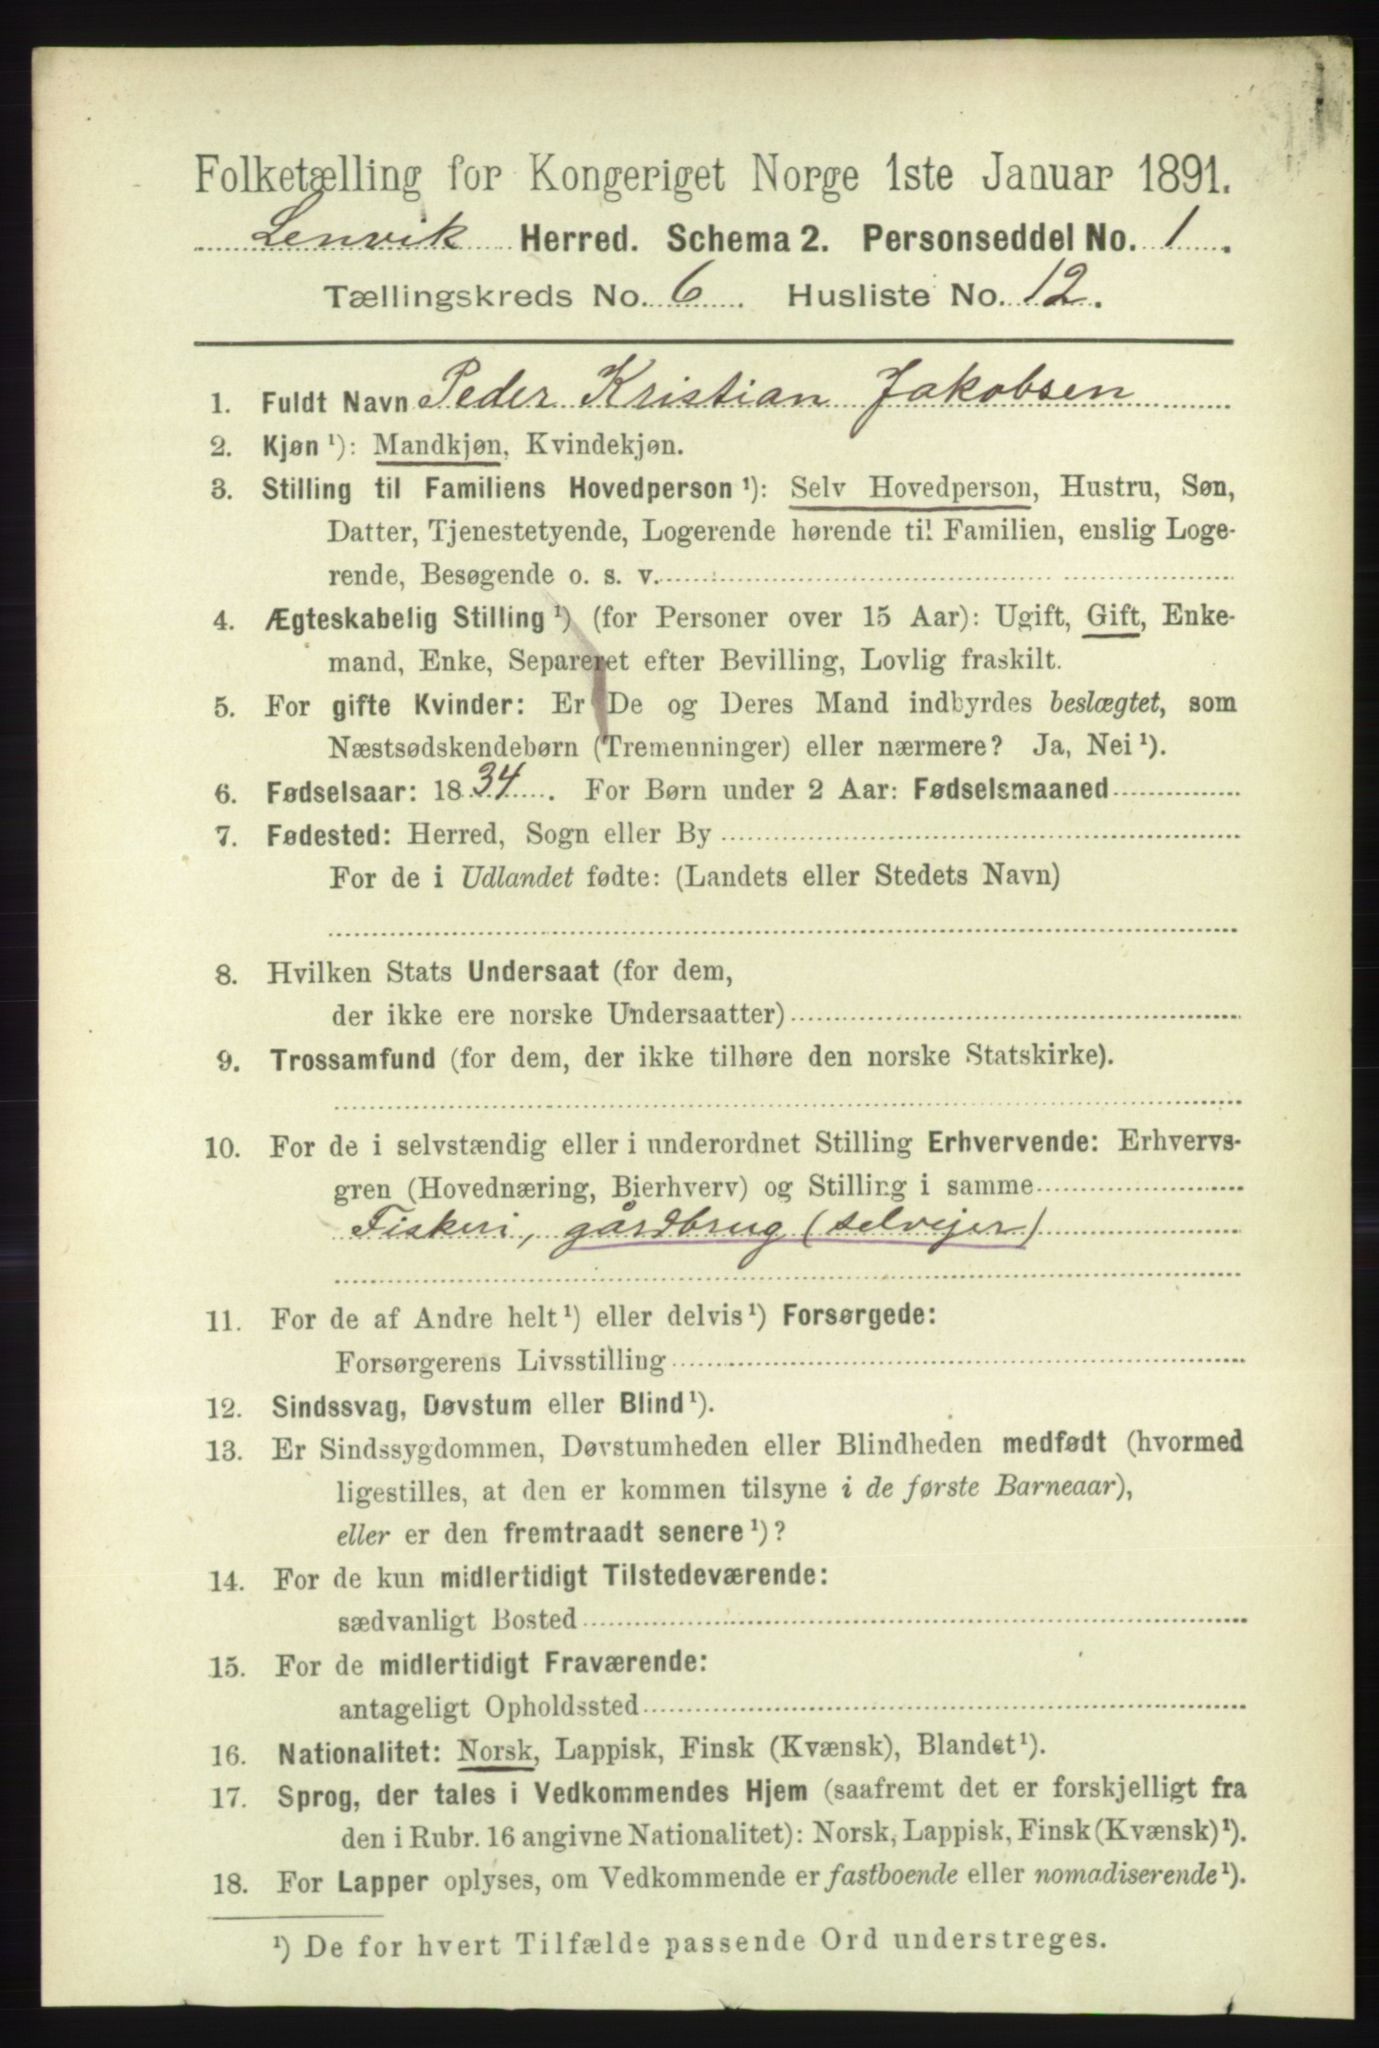 Folketælling for Kongeriget Norge 1ste Januar 1891.
Lenvik Herred. Schema 2. Personseddel No. 1.
Tællingskreds No. 6. Husliste No. 12.
1. Fuldt Navn Peder Kristian Jakobsen
2. Kjøn ¹): Mandkjøn, Kvindekjøn.
3. Stilling til Familiens Hovedperson ¹): Selv Hovedperson, Hustru, Søn,
Datter, Tjenestetyende, Logerende hørende til Familien, enslig Loge-
rende, Besøgende o. s. v.
4. Ægteskabelig Stilling ¹) (for Personer over 15 Aar): Ugift, Gift, Enke-
mand, Enke, Separeret efter Bevilling, Lovlig fraskilt.
5. For gifte Kvinder: Er De og Deres Mand indbyrdes beslægtet, som
Næstsødskendebørn (Tremenninger) eller nærmere? Ja, Nei ¹).
6. Fødselsaar: 1834. For Børn under 2 Aar: Fødselsmaaned
7. Fødested: Herred, Sogn eller By
For de i Udlandet fødte: (Landets eller Stedets Navn)
8. Hvilken Stats Undersaat (for dem,
der ikke ere norske Undersaatter)
9. Trossamfund (for dem, der ikke tilhøre den norske Statskirke).
10. For de i selvstændig eller i underordnet Stilling Erhvervende: Erhvervs-
gren (Hovednæring, Bierhverv) og Stilling i samme
Fiskeri, gårdbrug (selvejer)
11. For de af Andre helt ¹) eller delvis ¹) Forsørgede:
Forsørgerens Livsstilling
12. Sindssvag, Døvstum eller Blind ¹).
13. Er Sindssygdommen, Døvstumheden eller Blindheden medfødt (hvormed
ligestilles, at den er kommen tilsyne i de første Barneaar),
eller er den fremtraadt senere ¹)?
14. For de kun midlertidigt Tilstedeværende:
sædvanligt Bosted
15. For de midlertidigt Fraværende:
antageligt Opholdssted
16. Nationalitet: Norsk, Lappisk, Finsk (Kvænsk), Blandet ¹).
17. Sprog, der tales i Vedkommendes Hjem (saafremt det er forskjelligt fra
den i Rubr. 16 angivne Nationalitet): Norsk, Lappisk, Finsk (Kvænsk) ¹).
18. For Lapper oplyses, om Vedkommende er fastboende eller nomadiserende ¹).
¹) De for hvert Tilfælde passende Ord understreges.